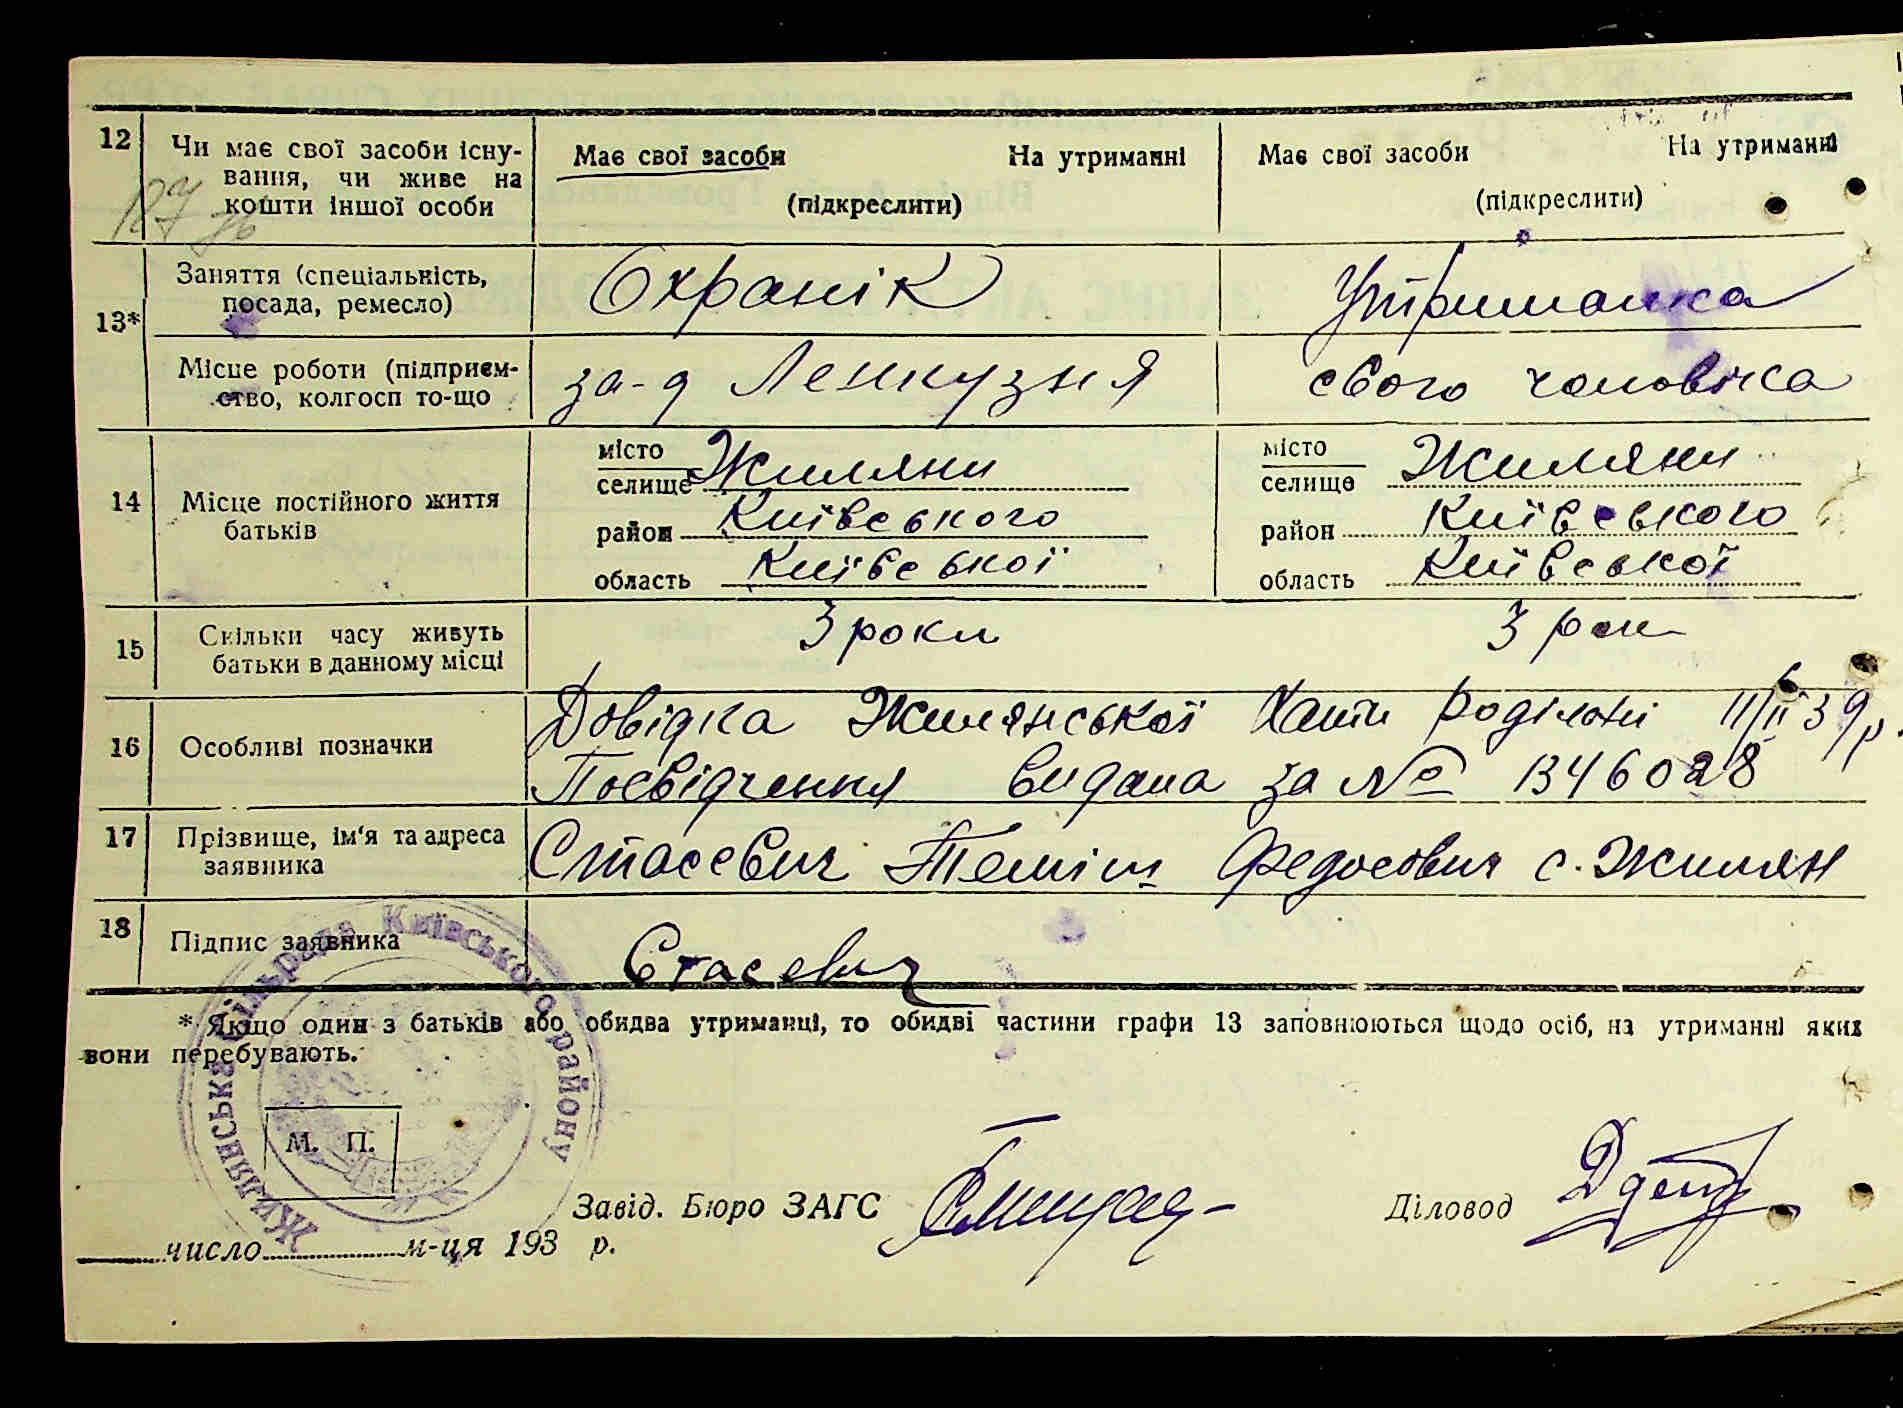 12
Чи має свої засоби існу-
вання, чи живе на
кошти іншої особи
Має свої засоби На утриманні
(підкреслити)
Має свої засоби На утриманні
(підкреслити)
13*
Заняття (спеціальність,
посада, ремесло)
Охранік
Утриманка
Місце роботи (підприєм-
ство, колгосп то-що
за-д Ленкузня
свого чоловіка
14
Місце постійного життя
батьків
місто
селище Жиляни
район Київського
область Київської
місто
селище Жиляни
район Київського
область Київської
15
Скільки часу живуть
батьки в данному місці
3 роки
3 рок
16
Особливі позначки
Довідка Жилянської Хати 39р.
Посвідчення видана за № 1346028
17
Прізвище, ім'я та адреса
заявника
Стасевич Федосович с. Жилян
18
Підпис заявника
Стасевич
* Якщо один з батьків або обидва утриманці, то обидві частини графи 13 заповнюються щодо осіб, на утриманні яких
вони перебувають.
Жилянська сільрада Київського району
М. П.
Завід. Бюро ЗАГС
Діловод
число м-ця 193 р.